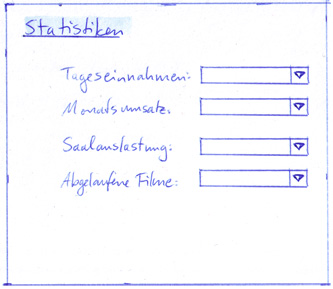 Statistiken
Tageseinnahmen:
Monatsumsatz:
Saalauslastung:
Abgelaufene Filme: